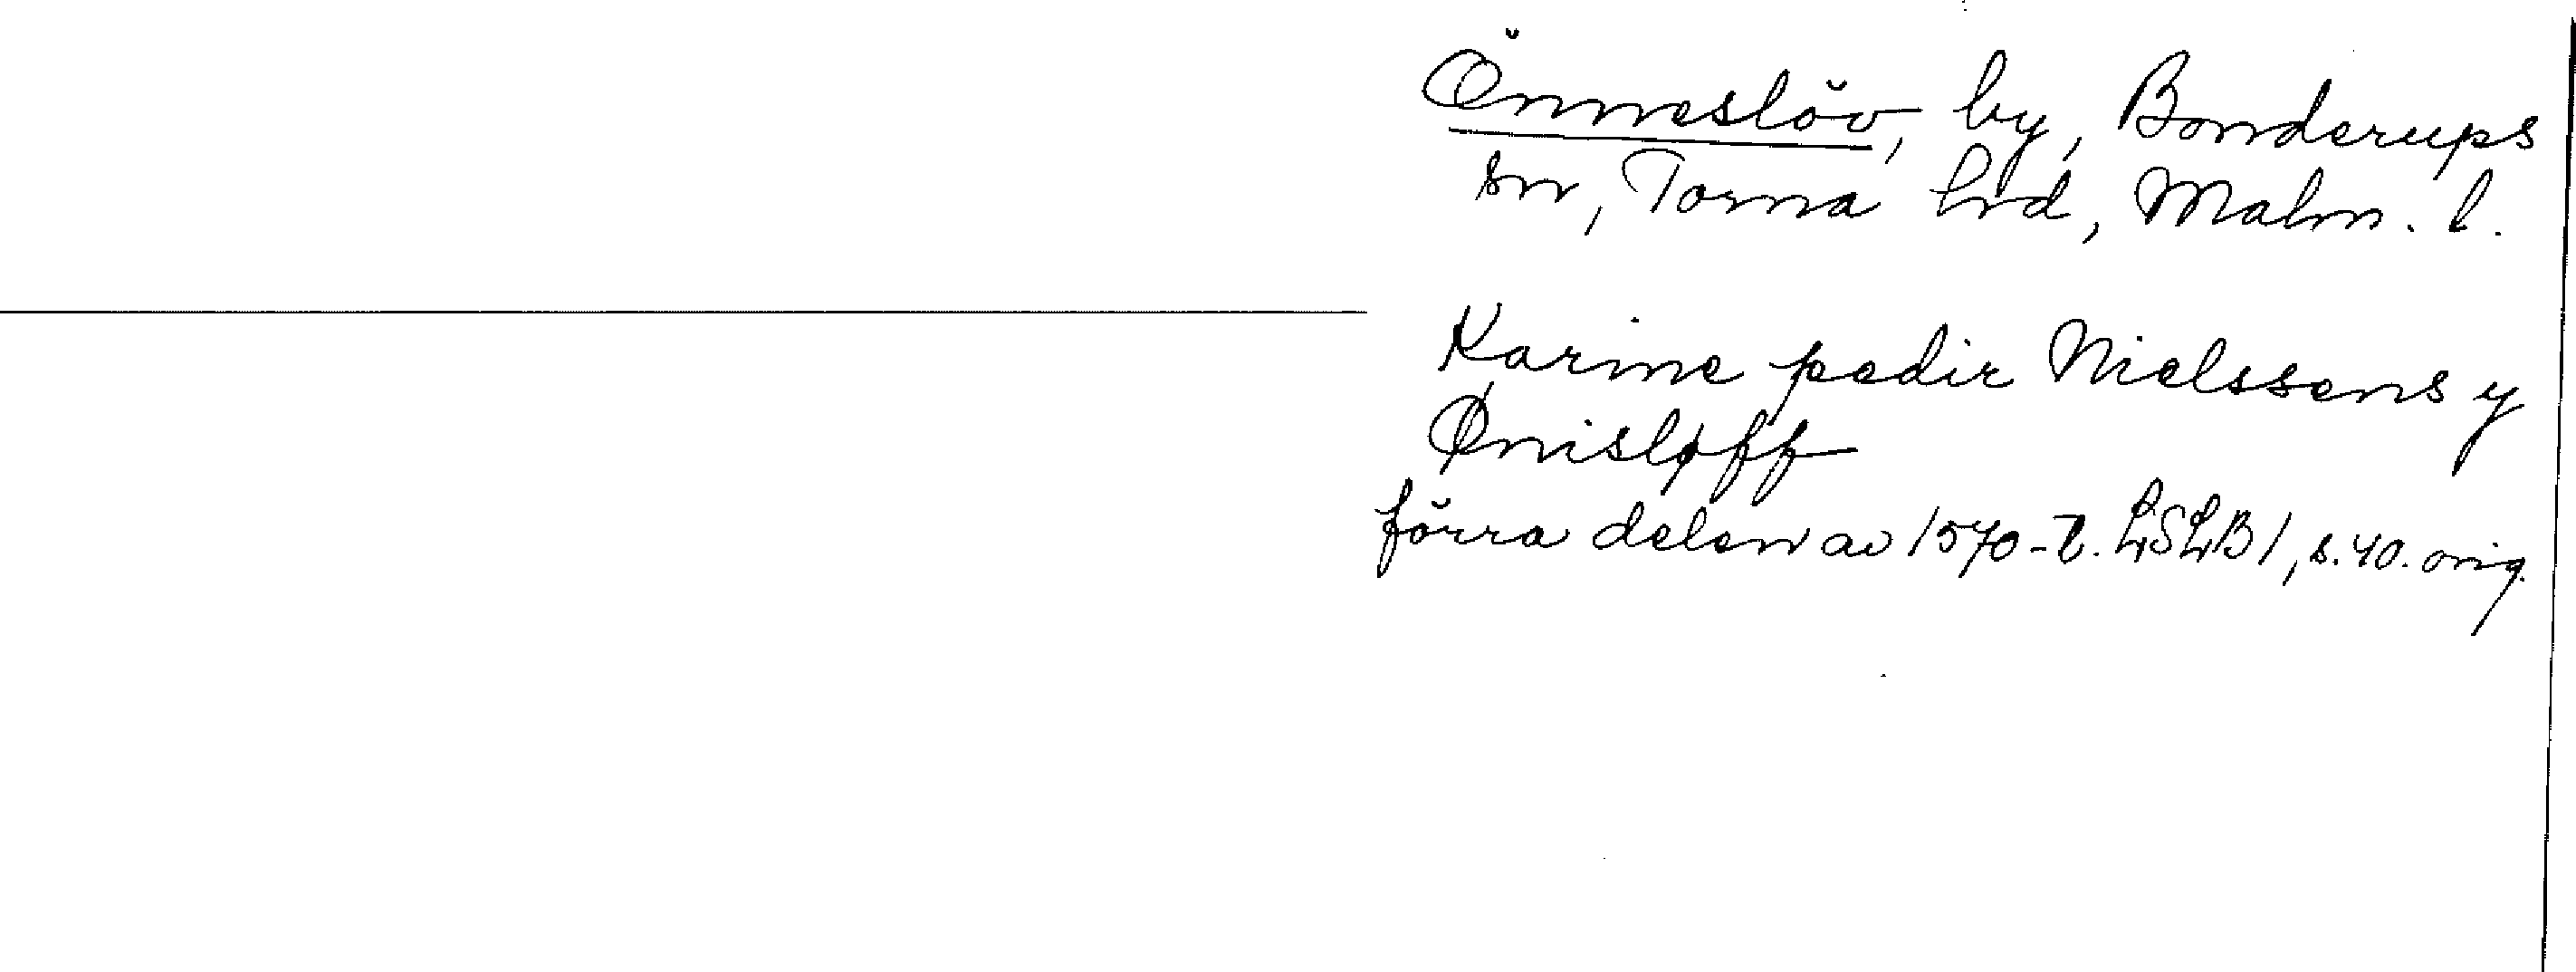 Önneslöv, by, Bonderups
sn, Torna hd, Malm. l.
Karine pedir Nielssens y
Ønisløff
förra delen av 1570-t. LSLB 1, s. 40. orig.